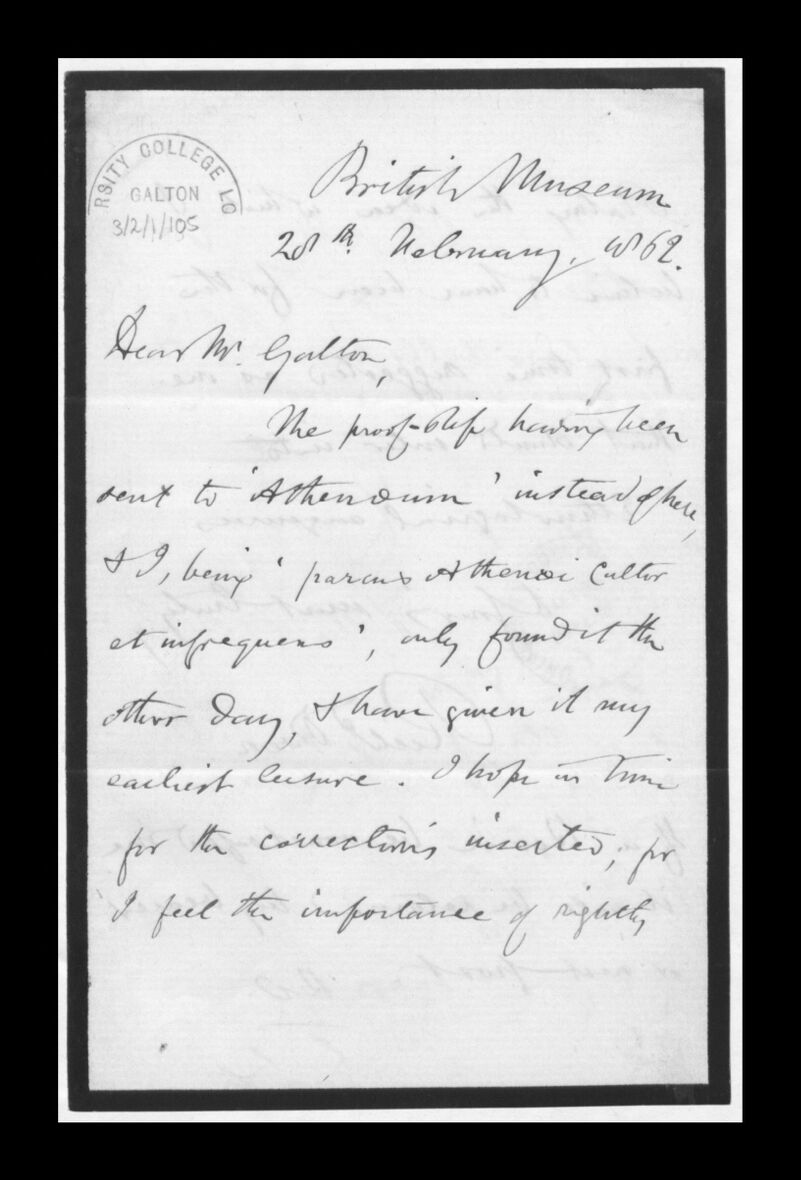 RSITY COLLEGE LO
GALTON
3/2/1/105
British Museum
28th. February, 1862.
Dear Mr. Galton,
The proof-slip having been
sent to 'Athenæum' instead of here,
& I, being 'parcus Athenæi Cultor
et infrequens', only found it the
other day, & have given it my
earliest leisure. I hope in time
for the corrections inserted, for
I feel the importance of rightly